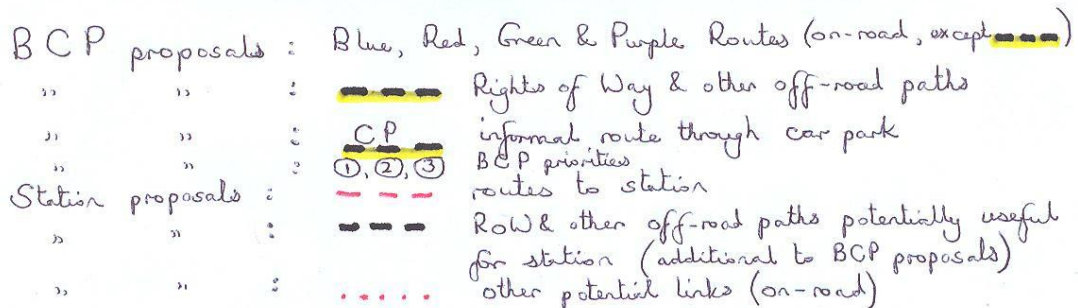 BCP proposals : Blue, Red, Green & Purple Routes (on-road, except ---)
" " : Rights of Way & other off-road paths
" " : CP informal route through car park
" " : ①, ②, ③ BCP priorities
Station proposals : routes to station
" " : RoW & other off-road paths potentially useful
for station (additional to BCP proposals)
" " : other potential links (on-road)